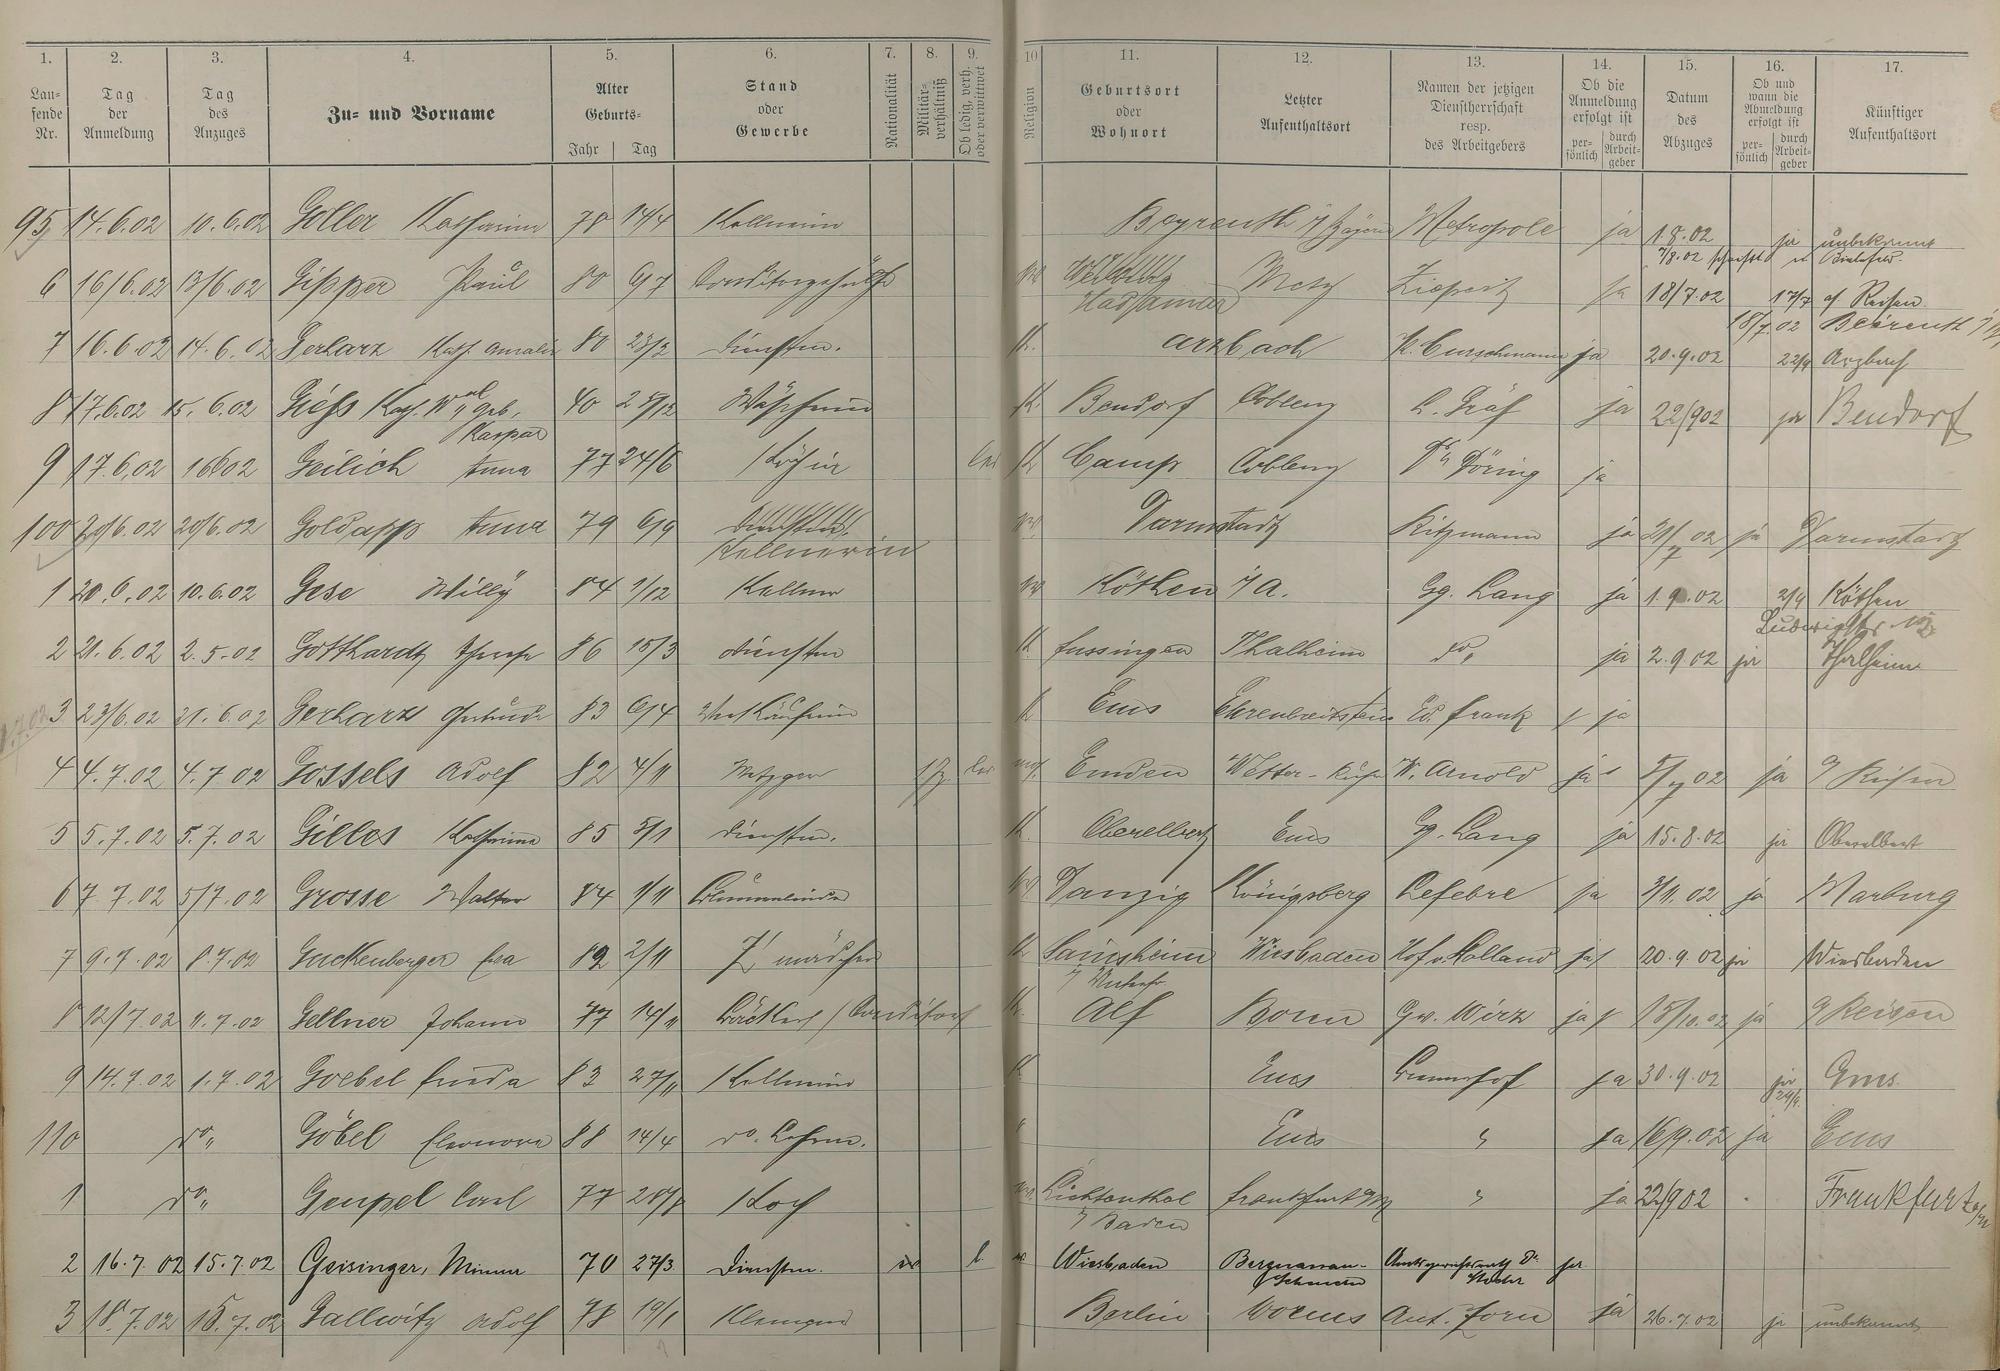 1. 2. 3. 4. 5. 6. 7. 8. 9. 10 11. 12. 13. 14. 15. 16. 17.
Lau-
fende
Nr.
Tag
der
Anmeldung
Tag
des
Anzuges
Zu- und Vorname
Alter
Geburts-
Jahr Tag
Stand
oder
Gewerbe
Nationalität
Militär-
verhältniß
Ob ledig, verh.
oder verwittwet
Religion
Geburtsort
oder
Wohnort
Letzter
Aufenthaltsort
Namen der jetzigen
Dienstherrschaft
resp.
des Arbeitgebers
Ob die
Anmeldung
erfolgt ist
per-
sönlich
durch
Arbeit-
geber
Datum
des
Abzuges
Ob und
wann die
Abmeldung
erfolgt ist
per-
sönlich
durch
Arbeit-
geber
Künftiger
Aufenthaltsort
95 14.6.02 10.6.02 Goller Katharina 78 14/4 Kellnerin Beyreuth Metropole ja 1.8.02 ja unbekannt
6 16/6.02 13/6.02 Gipper Paul 80 6/7 Conditorgehülfe Hadamar Metz ja 18/7.02 17/7 a/ Reisen
7 16.6.02 14.6.02 Gerharz Kath. Amalie 80 23/2 Dienstm. K. Arzbach ja 20.9.02 22/9 Arzbach
8 17.6.02 15.6.02 Giehs Kath. Wwe geb. 40 Wäscherin K. Bendorf Coblenz L. Gräf ja 22/9 02 ja Bendorf
Kaspar
9 17.6.02 16 6 02 Geilich Anna 77 24/6 Köchin led K Camp Coblenz Döring ja
100 20/6.02 20/6.02 Goldapp Anna 79 6/9 Darmstadt Kitzmann ja 21/7 02 ja Darmstadt
Kellnerin
1 20.6.02 10.6.02 Gese Willy 84 1/12 Kellner Köthen i/A. Gg. Lang ja 1.9.02 2/9 Köthen
2 21.6.02 2.5.02 Gotthardt Therese 86 15/3 Dienstm K. Fussingen Thalheim do. ja 2.9.02 ja Thalheim
3 23/6.02 21.6.02 Gerharz Gertrude 83 6/4 Verkäuferin K Ems Ehrenbreitstein Ed. Frank ja
4 4.7.02 4.7.02 Gossels Adolf 82 4/11 Metzger led Emden W. Arnold ja 5/7 02 ja a/ Reisen
5 5.7.02 5.7.02 Gilles Katharina 85 5/1 Dienstm. K. Oberelbert Ems Gg. Lang ja 15.8.02 ja Oberelbert
6 7.7.02 5/7.02 Grosse Walter 84 1/11 Danzig Königsberg Lefebre ja 3/11.02 ja Marburg
7 9.7.02 8.7.02 Guckenberger Eva 82 2/11 Z. mädchen K Wiesbaden Hof v. Holland ja 20.9.02 ja Wiesbaden
8 12/7.02 11.7.02 Gellner Johann 77 14/11 Bäcker / Conditor K. Alf Bonn Gw. Wirz ja 15/10.02 ja a/ Reisen
9 14.7.02 1.7.02 Goebel Frieda 83 27/11 Kellnerin K. Ems ja 30.9.02 ja Ems.
110 do " Göbel Eleonora 88 14/4 do. Ems " ja 16/9.02 ja Ems
1 do " Geupel Carl 77 Koch Lichtenthal Frankfurt a/M " ja 22/9 02 Frankfurt a/M
i/ Baden
2 16.7.02 15.7.02 Geisinger, Minna 70 27/3 Dienstm. l. Wiesbaden Bergnassau- Amtsgerichtsrath Dr ja
Scheuern
3 18.7.02 15.7.02 Gallwitz Adolf 78 19/1 Klempner Berlin Worms Ant. Zorn ja 26.7.02 ja unbekannt